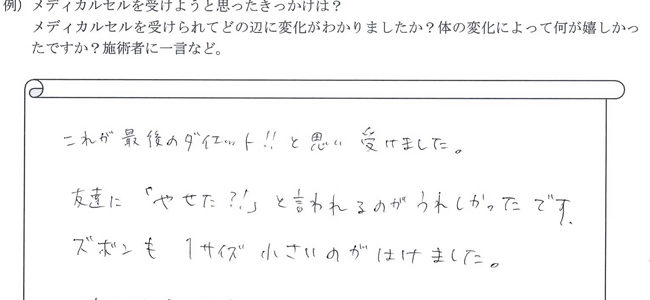 例）メディカルセルを受けようと思ったきっかけは？
メディカルセルを受けられてどの辺に変化がわかりましたか？体の変化によって何が嬉しかっ
たですか？施術者に一言など。
これが最後のダイエット!!と思い受けました。
友達に「やせた?!」と言われるのがうれしかったです.
ズボンも1サイズ小さいのがはけました。